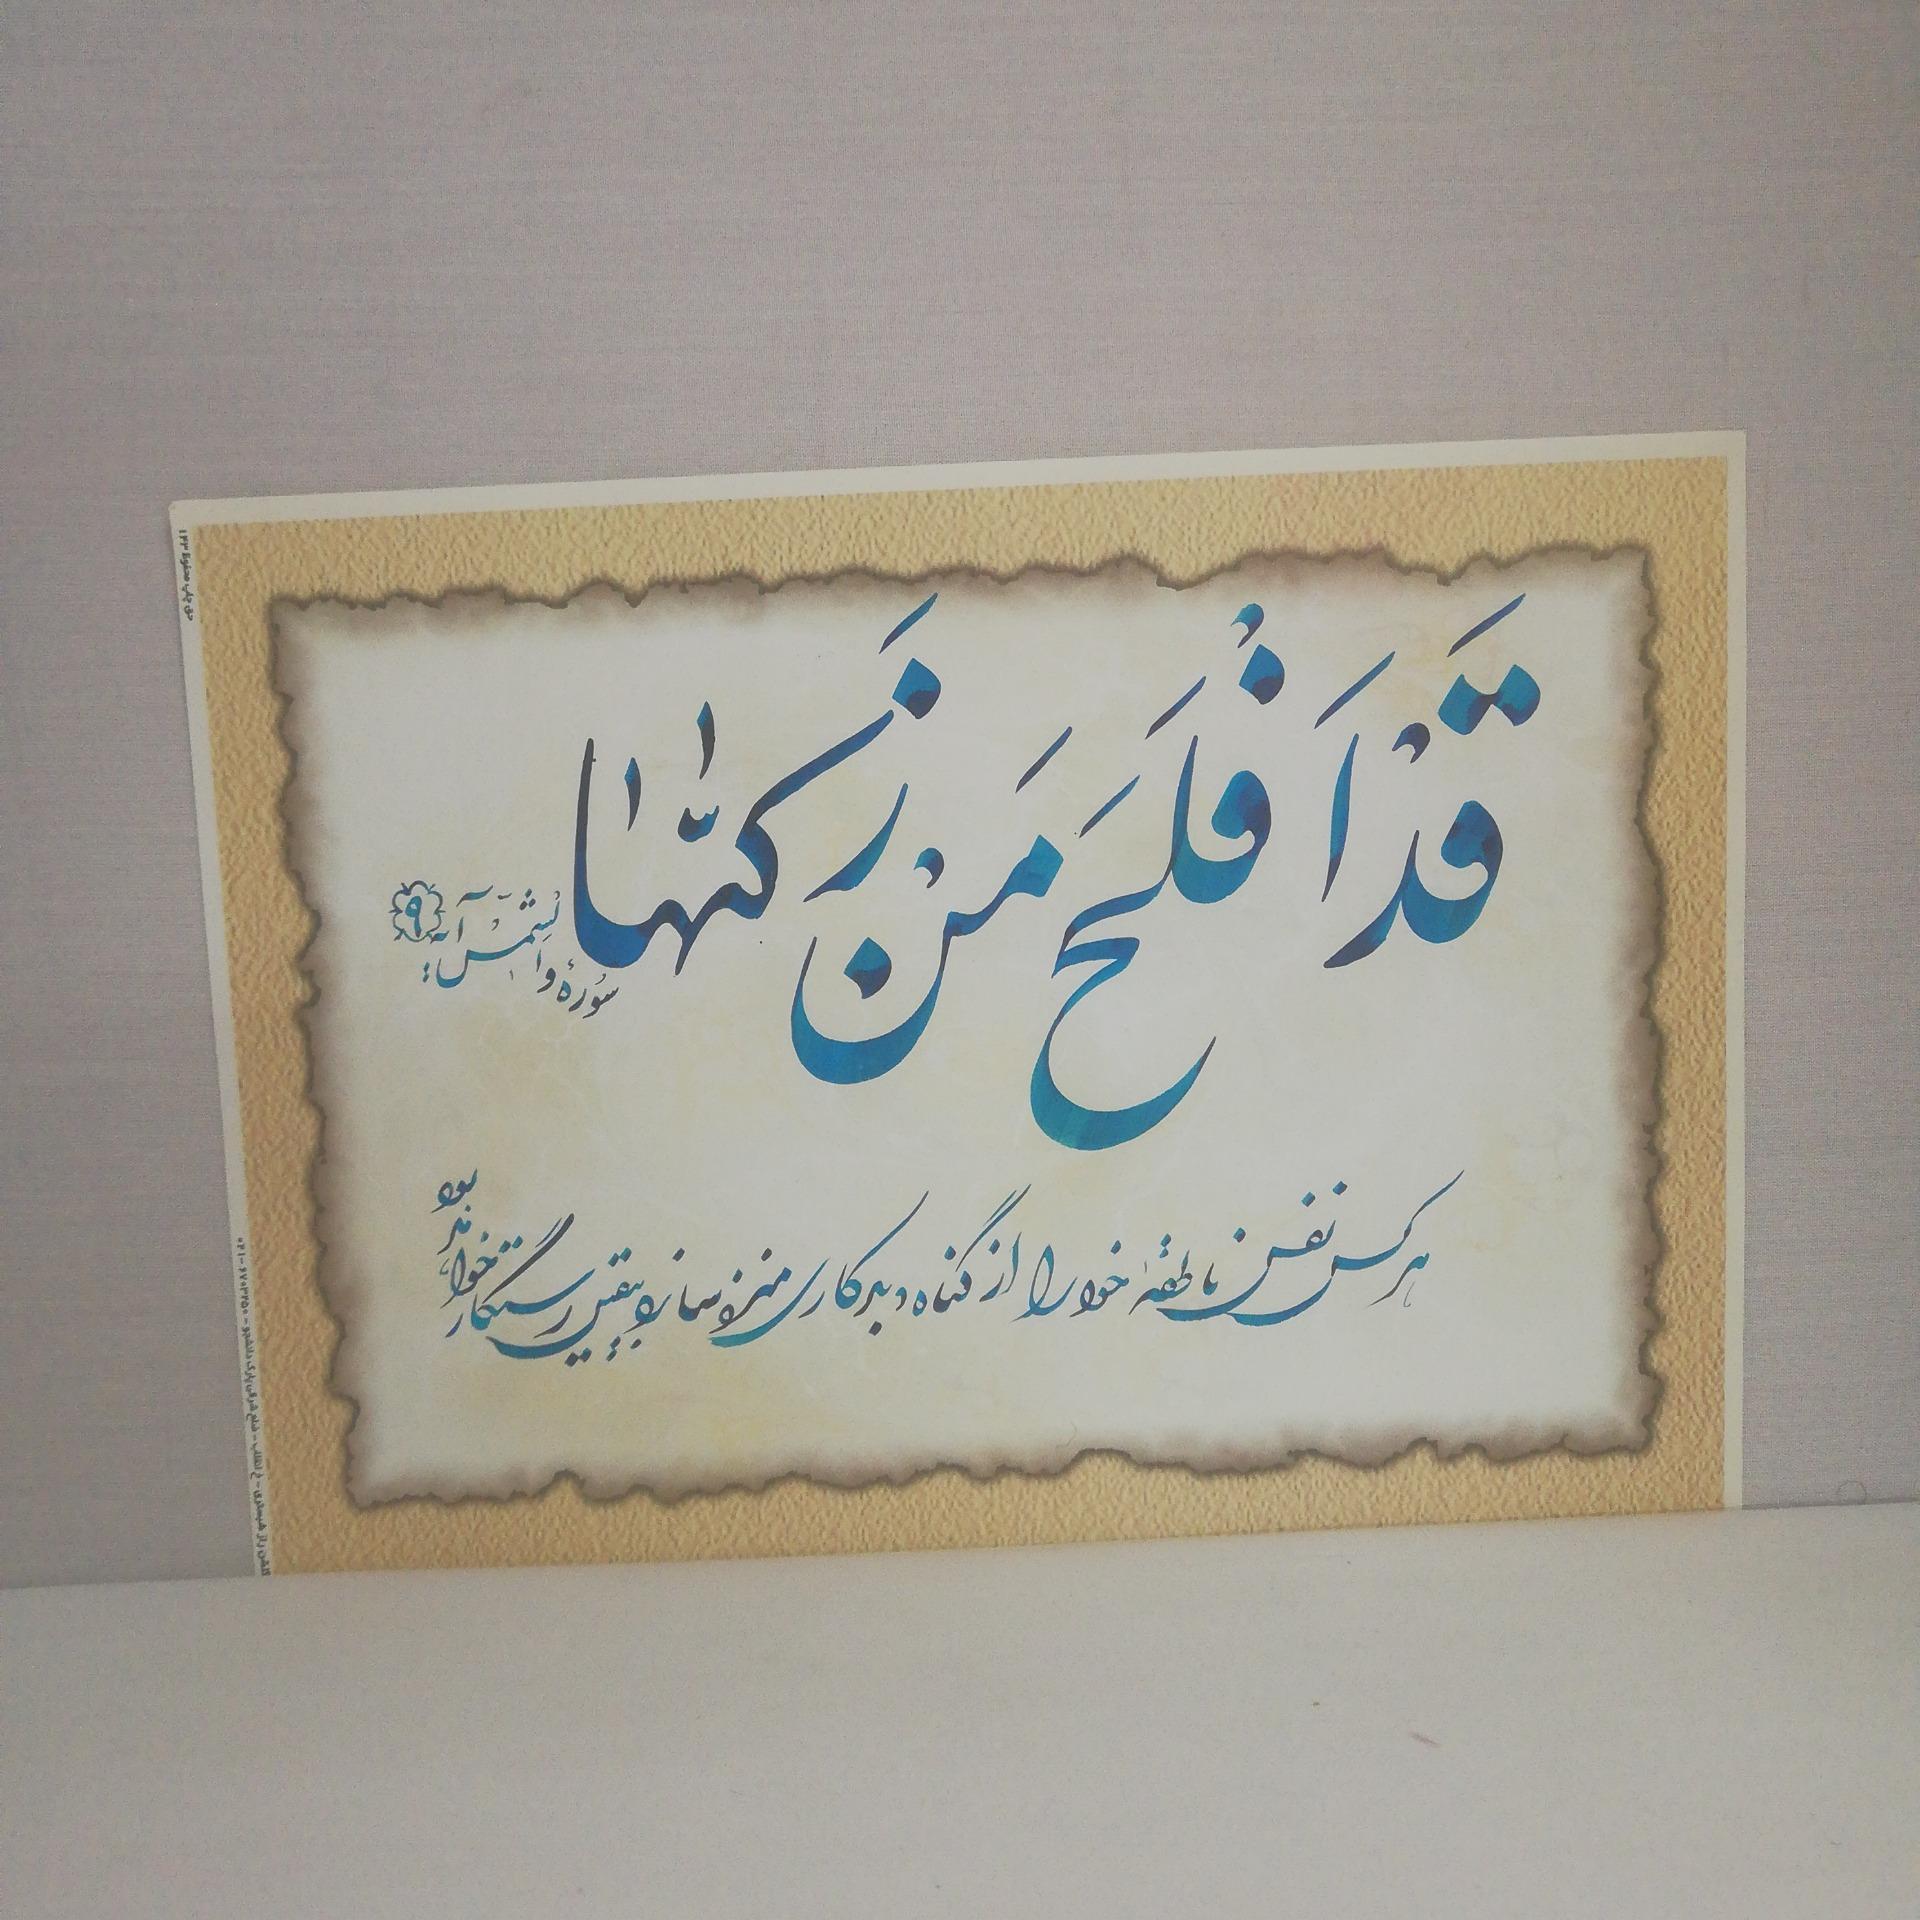 قَدْ اَفْلَحَ مَنْ زَكّٰىهٰا
سُورهٔ والشمس آیه ۹
هر کس نفس ناطقهٔ خود را از گناه و بدکاری منزه سازد بیقین رستگار خواهد بود